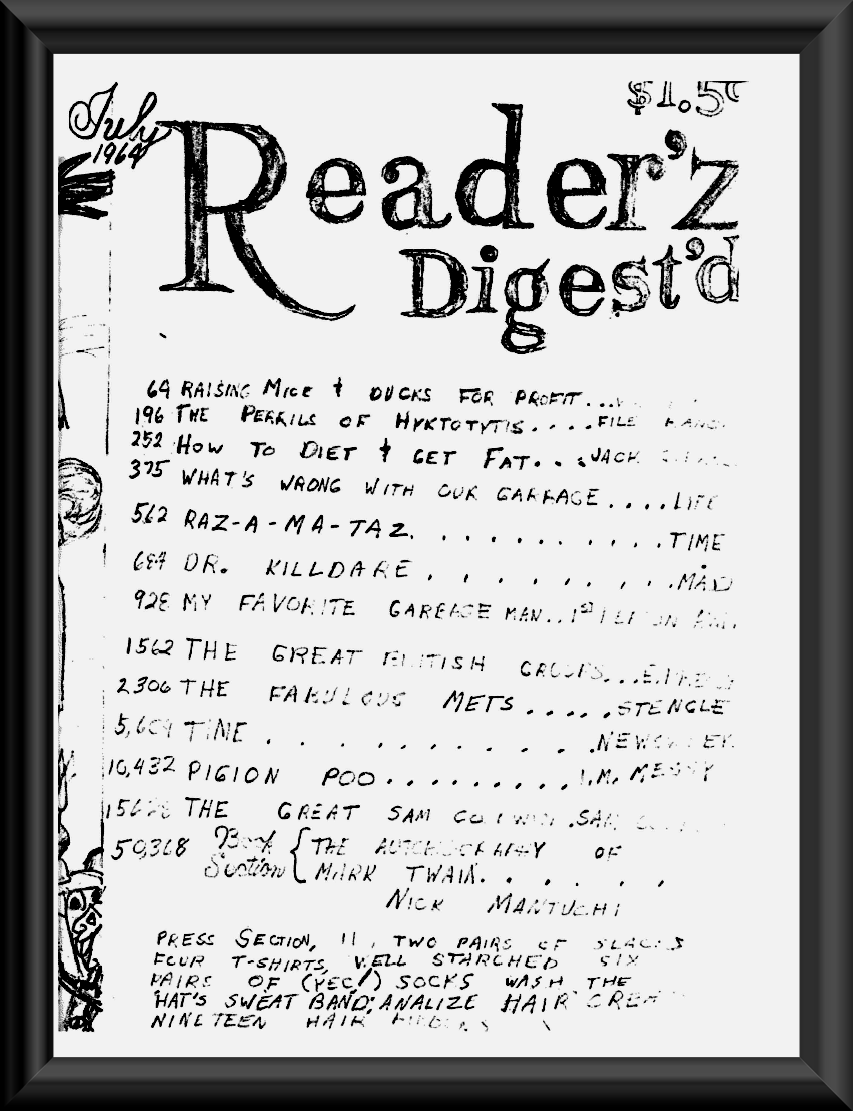 July
1964
$1.50
Reader'z
Digest'd
64 RAISING MICE & DUCKS FOR PROFIT...
196 THE PERRILS OF HYKTOTYTIS....FILE
252 HOW TO DIET & GET FAT...JACK
375 WHAT'S WRONG WITH OUR GARBAGE....LIFE
562 RAZ-A-MA-TAZ. . . . . . . . . . TIME
684 DR. KILLDARE . . . . . . . .MAD
928 MY FAVORITE GARBAGE MAN..
1562 THE GREAT BRITISH GROUPS...
2306 THE FABULOUS METS .....STENGLE
5,609 TINE . . . . . . . . . .NEWSWEEK
10,432 PIGION POO.........I.M. MESSY
THE GREAT SAM .SAM
50,368 Book Section { THE AUTOBIOGRAPHY OF
MARK TWAIN. . . . .
NICK MANTUCHI
PRESS SECTION, 11, TWO PAIRS OF SLACKS
FOUR T-SHIRTS, WELL STARCHED SIX
PAIRS OF (YEC!) SOCKS WASH THE
HAT'S SWEAT BAND; ANALIZE HAIR CREAM
NINETEEN HAIR